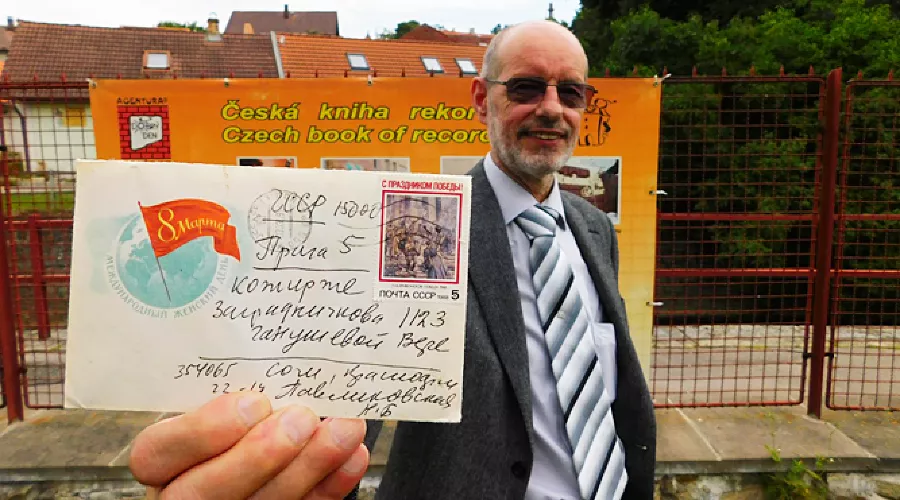 AGENTURA
DOBRÝ
DEN
Česká kniha rekor
Czech book of record
8 Марта
МЕЖДУНАРОДНЫЙ ЖЕНСКИЙ ДЕНЬ
С ПРАЗДНИКОМ ПОБЕДЫ!
ПОЧТА СССР 5
15000
Прага 5
Кожирже
Заградничкова 1123
Ганушевой Вере
354065 Сочи,
22-14 Павликовская
Н.Б